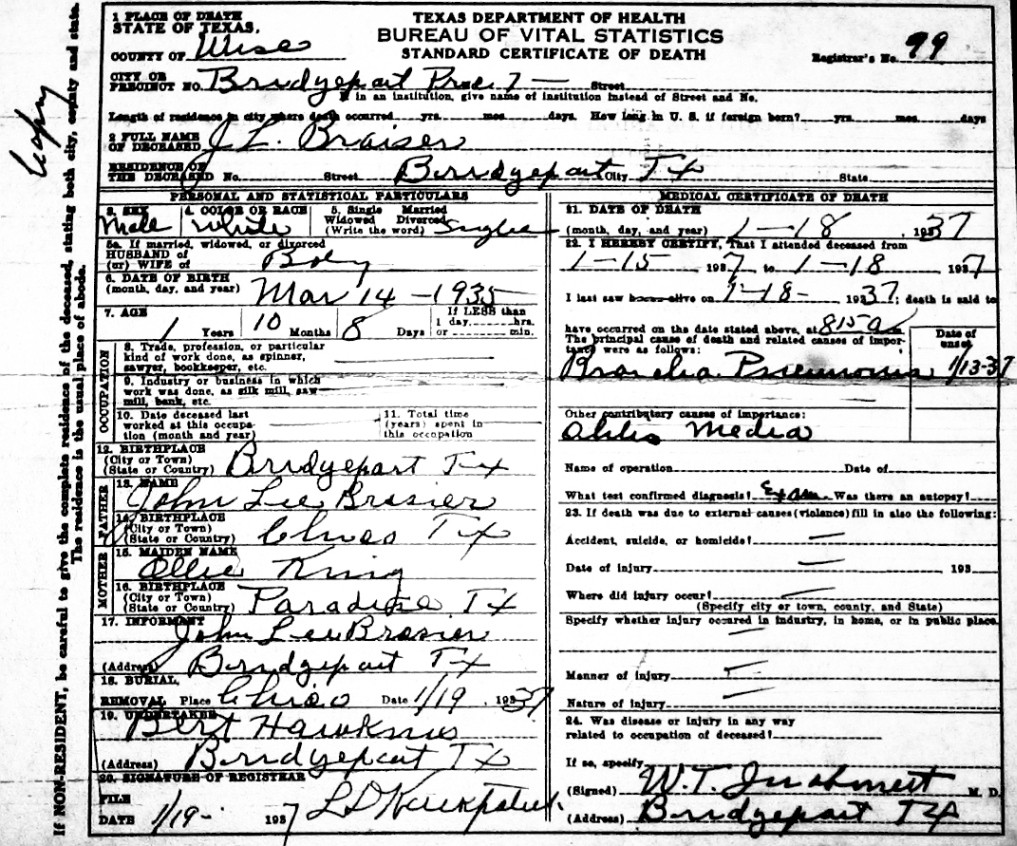 If NON-RESIDENT, be careful to give the complete residence of the deceased, stating both city, county and state.
The residence is the usual place of abode.
Copy
1 PLACE OF DEATH
STATE OF TEXAS.
COUNTY OF Wise
TEXAS DEPARTMENT OF HEALTH
BUREAU OF VITAL STATISTICS
STANDARD CERTIFICATE OF DEATH
Registrar's No. 99
CITY OR
PRECINCT NO. Bridgeport Prec 7 — Street
If in an institution, give name of institution instead of Street and No.
Length of residence in city where death occurred yrs. mos. days. How long in U. S. if foreign born? yrs. mos. days
2 FULL NAME
OF DECEASED J. L. Braiser
RESIDENCE OF
THE DECEASED No. Street Bridgeport City Tx State
PERSONAL AND STATISTICAL PARTICULARS
3. SEX Male
4. COLOR OR RACE White
5. Single Married
Widowed Divorced
(Write the word) Single
5a. If married, widowed, or divorced
HUSBAND of
(or) WIFE of Boy
6. DATE OF BIRTH
(month, day, and year) Mar 14 - 1935
7. AGE
1 Years 10 Months 8 Days
If LESS than
1 day, hrs.
or min.
OCCUPATION
8. Trade, profession, or particular
kind of work done, as spinner,
sawyer, bookkeeper, etc.
9. Industry or business in which
work was done, as silk mill, saw
mill, bank, etc.
10. Date deceased last
worked at this occupa-
tion (month and year)
11. Total time
(years) spent in
this occupation
12. BIRTHPLACE
(City or Town)
(State or Country) Bridgeport Tx
FATHER
13. NAME
John Lee Brasier
14. BIRTHPLACE
(City or Town)
(State or Country) Chico Tx
MOTHER
15. MAIDEN NAME
Ollie King
16. BIRTHPLACE
(City or Town)
(State or Country) Paradise Tx
17. INFORMANT
John Lee Brasier
(Address) Bridgeport Tx
18. BURIAL,
REMOVAL Place Chico Date 1/19 , 1937
19. UNDERTAKER
Bert Hawkins
(Address) Bridgeport Tx
20. SIGNATURE OF REGISTRAR
FILE
DATE 1/19- 1937
MEDICAL CERTIFICATE OF DEATH
21. DATE OF DEATH
(month, day, and year) 1-18 , 1937
22. I HEREBY CERTIFY, That I attended deceased from
1-15 1937 to 1-18 , 1937
I last saw home alive on 1-18- 1937; death is said to
have occurred on the date stated above, at 815 a m.
The principal cause of death and related causes of impor-
tance were as follows:
Date of
onset
Broncho Pneumonia 1/13-37
Other contributory causes of importance:
Media
Name of operation Date of
What test confirmed diagnosis? Exam Was there an autopsy?
23. If death was due to external causes (violence) fill in also the following:
Accident, suicide, or homicide? —
Date of injury — 193
Where did injury occur? —
(Specify city or town, county, and State)
Specify whether injury occured in industry, in home, or in public place.
—
Manner of injury —
Nature of injury —
24. Was disease or injury in any way
related to occupation of deceased?
If so, specify
(Signed) W.T. M. D.
(Address) Bridgeport Tx